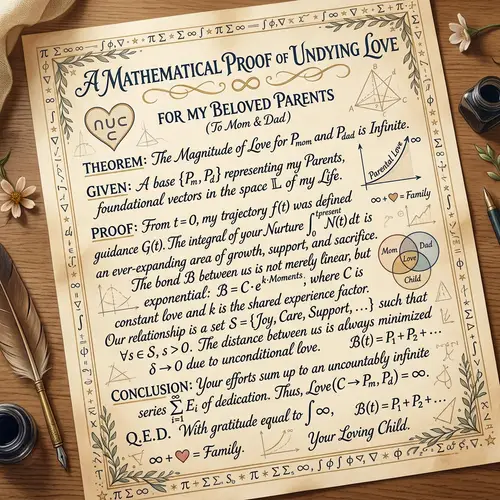 A Mathematical Proof of Undying Love
For My Beloved Parents
(To Mom & Dad)
nuc
C
THEOREM: The Magnitude of Love for P_mom and P_dad is Infinite.
GIVEN: A base {P_m, P_d} representing my Parents,
foundational vectors in the space 𝕃 of my Life.
∞
Parental Love
∞ + ♥ = Family
PROOF: From t = 0, my trajectory f(t) was defined
guidance G(t). The integral of your Nurture ∫_0^{t_present} N(t) dt is
an ever-expanding area of growth, support, and sacrifice.
The bond B between us is not merely linear, but
exponential: B = C · e^{k·Moments}, where C is
constant love and k is the shared experience factor.
Our relationship is a set S = {Joy, Care, Support, ...} such that
∀s ∈ S, s > 0. The distance between us is always minimized
δ → 0 due to unconditional love.
B(t) = P_1 + P_2 + ...
Mom
Dad
Love
Child
CONCLUSION: Your efforts sum up to an uncountably infinite
series ∑_{i=1}^∞ E_i of dedication. Thus, Love(C → P_m, P_d) = ∞.
Q.E.D. With gratitude equal to ∫∞,
B(t) = P_1 + P_2 + ...
∞ + ♥ = Family.
Your Loving Child.